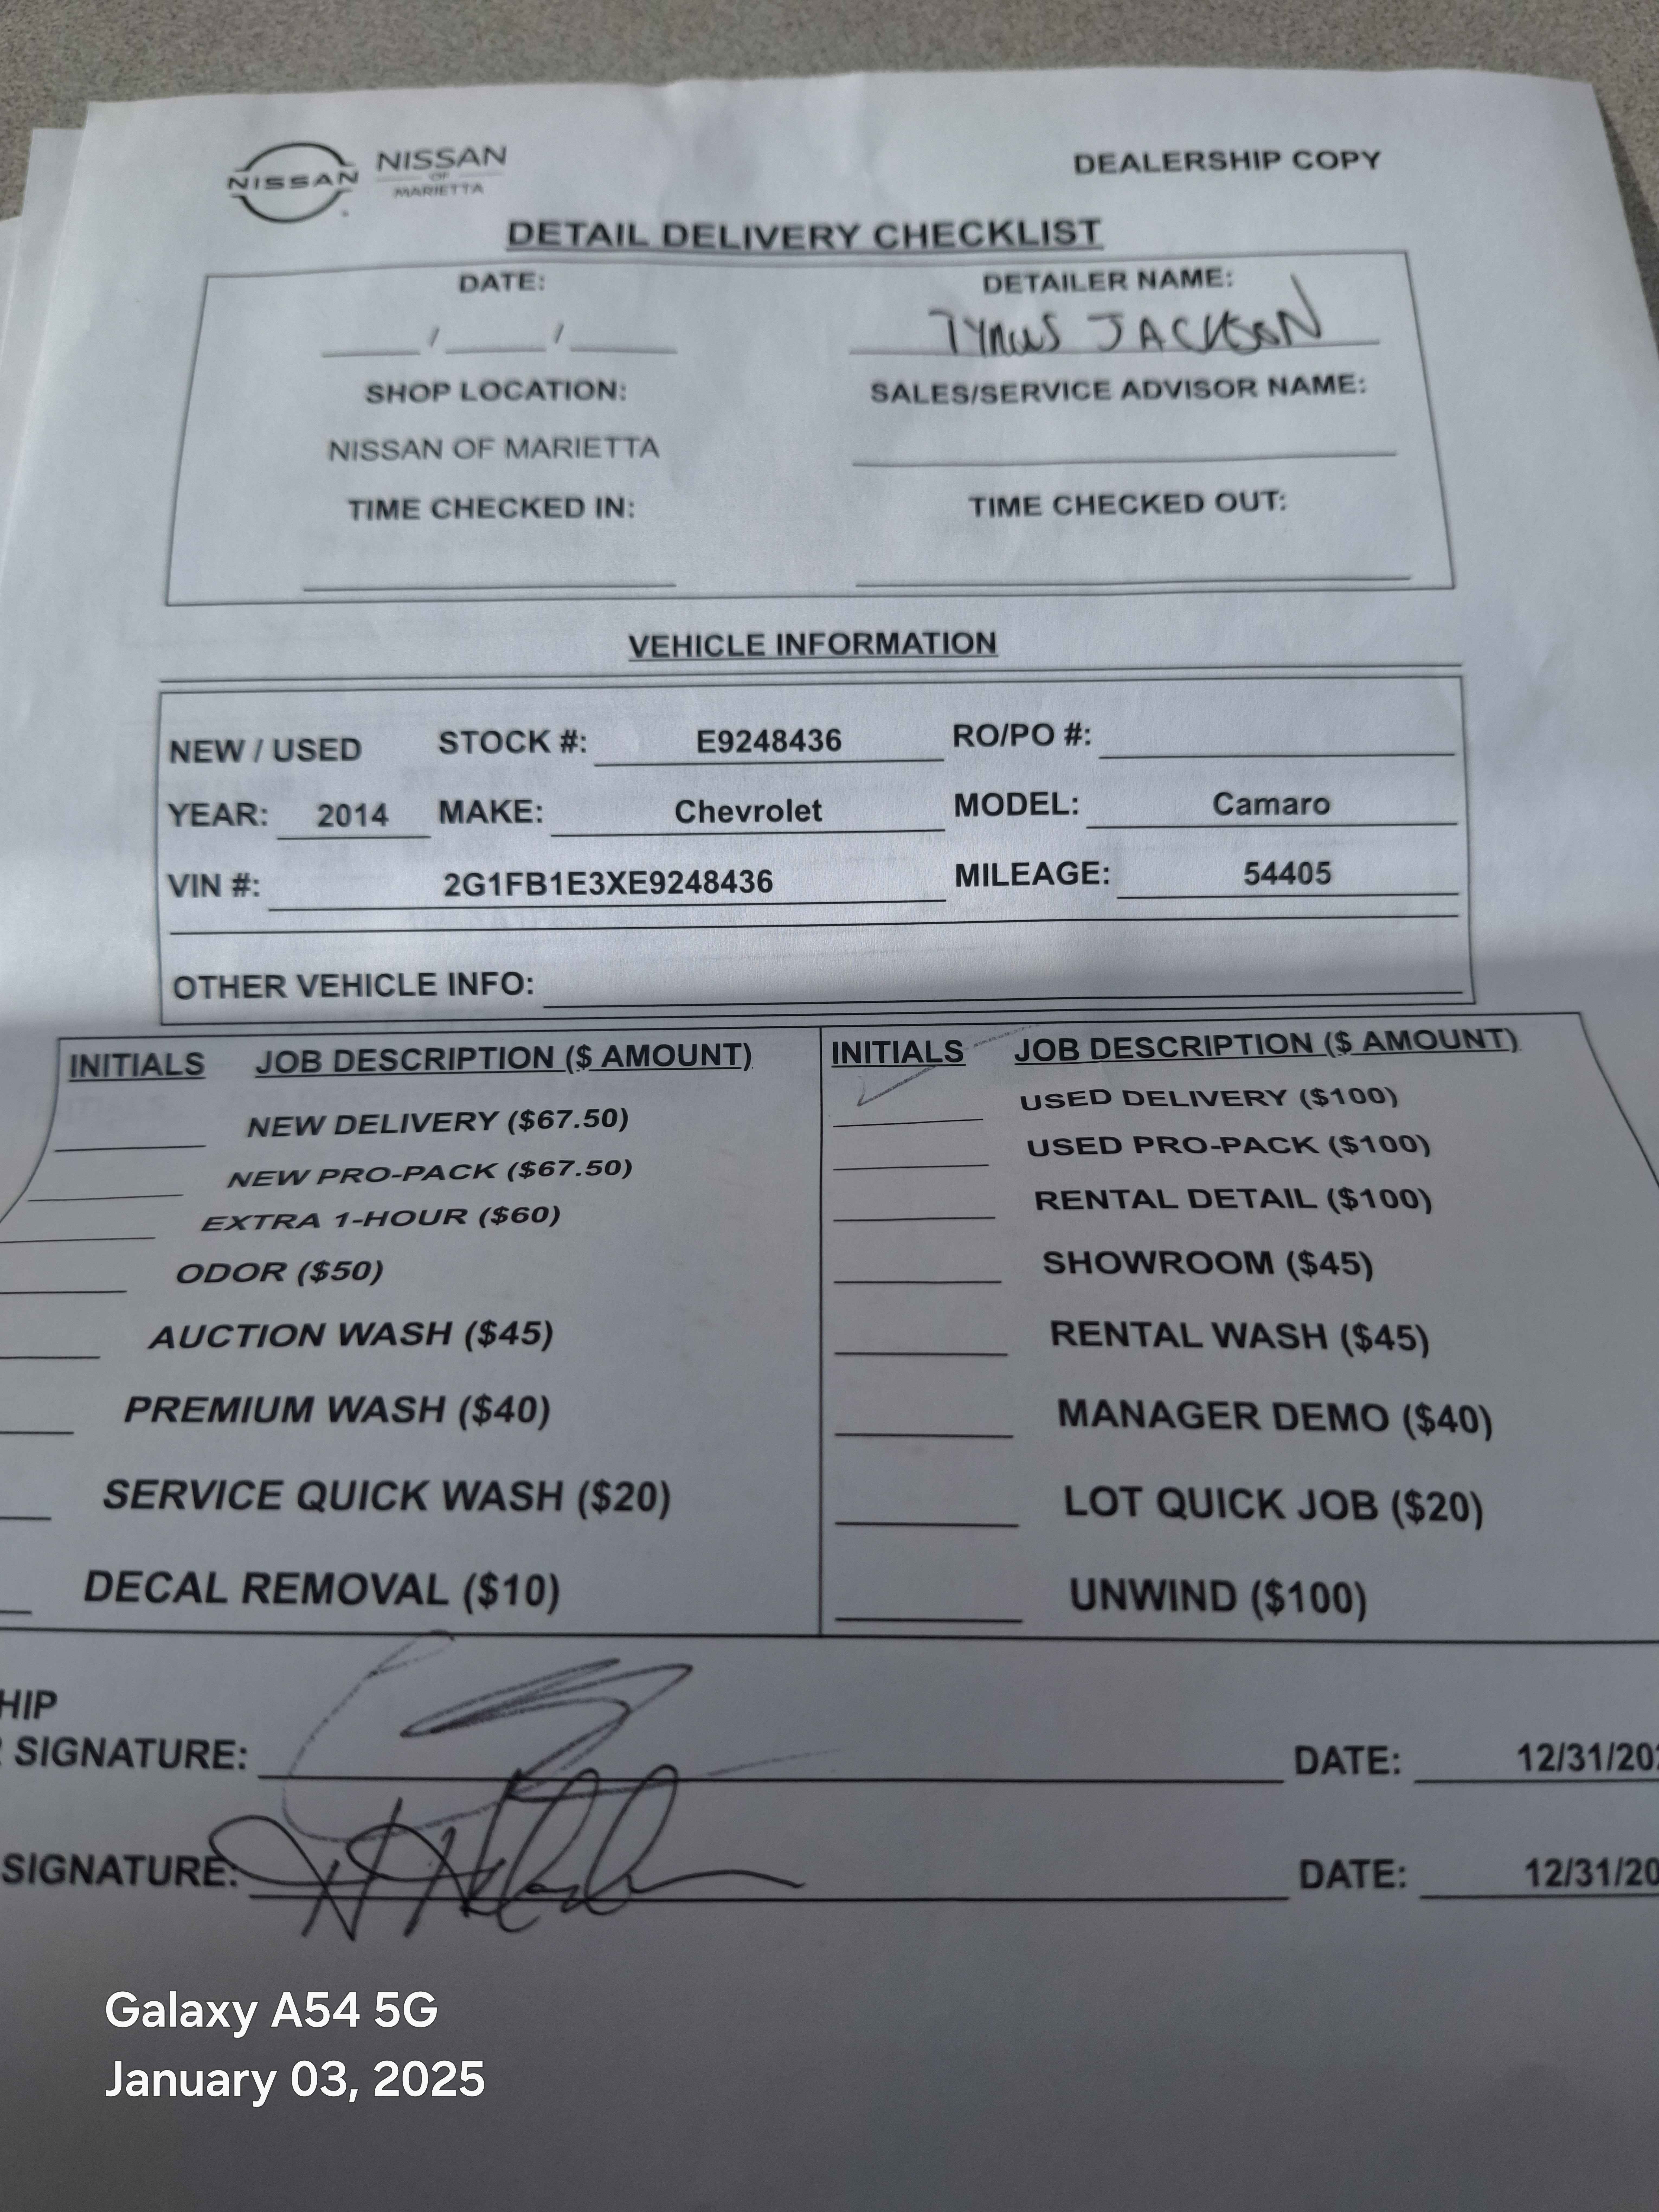 NISSAN NISSAN OF MARIETTA DEALERSHIP COPY
DETAIL DELIVERY CHECKLIST
DATE: DETAILER NAME:
/ / Tyrus JACKSON
SHOP LOCATION: SALES/SERVICE ADVISOR NAME:
NISSAN OF MARIETTA
TIME CHECKED IN: TIME CHECKED OUT:
VEHICLE INFORMATION
NEW / USED STOCK #: E9248436 RO/PO #:
YEAR: 2014 MAKE: Chevrolet MODEL: Camaro
VIN #: 2G1FB1E3XE9248436 MILEAGE: 54405
OTHER VEHICLE INFO:
INITIALS JOB DESCRIPTION ($ AMOUNT) INITIALS JOB DESCRIPTION ($ AMOUNT)
NEW DELIVERY ($67.50) USED DELIVERY ($100)
NEW PRO-PACK ($67.50) USED PRO-PACK ($100)
EXTRA 1-HOUR ($60) RENTAL DETAIL ($100)
ODOR ($50) SHOWROOM ($45)
AUCTION WASH ($45) RENTAL WASH ($45)
PREMIUM WASH ($40) MANAGER DEMO ($40)
SERVICE QUICK WASH ($20) LOT QUICK JOB ($20)
DECAL REMOVAL ($10) UNWIND ($100)
HIP
SIGNATURE: DATE: 12/31/20
SIGNATURE: DATE: 12/31/20
Galaxy A54 5G
January 03, 2025